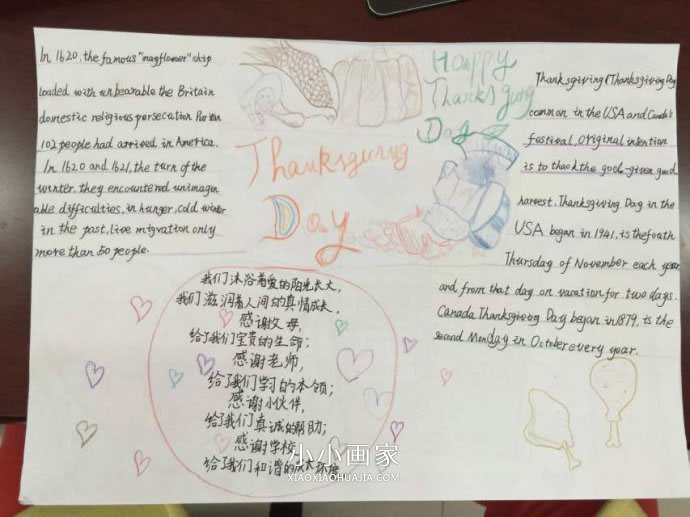 In 1620, the famous "magflomer" ship
loaded with unbearable the Britain
domestic religious persecution Puritan
102 people had arrived in America.
In 1620 and 1621, the turn of the
winter, they encountered unimagin
able difficulties, in hunger, cold winter
in the past, live migration only
more than 50 people.
Happy
Thanksgiving
Day
Thanksgivng
Day
Thanksgiving (Thanksgiving Day)
common in the USA and Canada's
festival, original intention
is to thack the god-given good
harvest. Thanksgiving Day in the
USA began in 1941, is the fouth
Thursday of November each year
and from that day on varation for two days.
Canada Thanksgiving Day began in 1879, is the
second Munday in October every year.
我们沐浴着爱的阳光长大,
我们滋润着人间的真情成长,
感谢父母,
给了我们宝贵的生命;
感谢老师,
给了我们学习的本领;
感谢小伙伴,
给了我们真诚的帮助;
感谢学校,
给了我们和谐的成长环境
小小画家
XIAOXIAOHUAJIA.COM